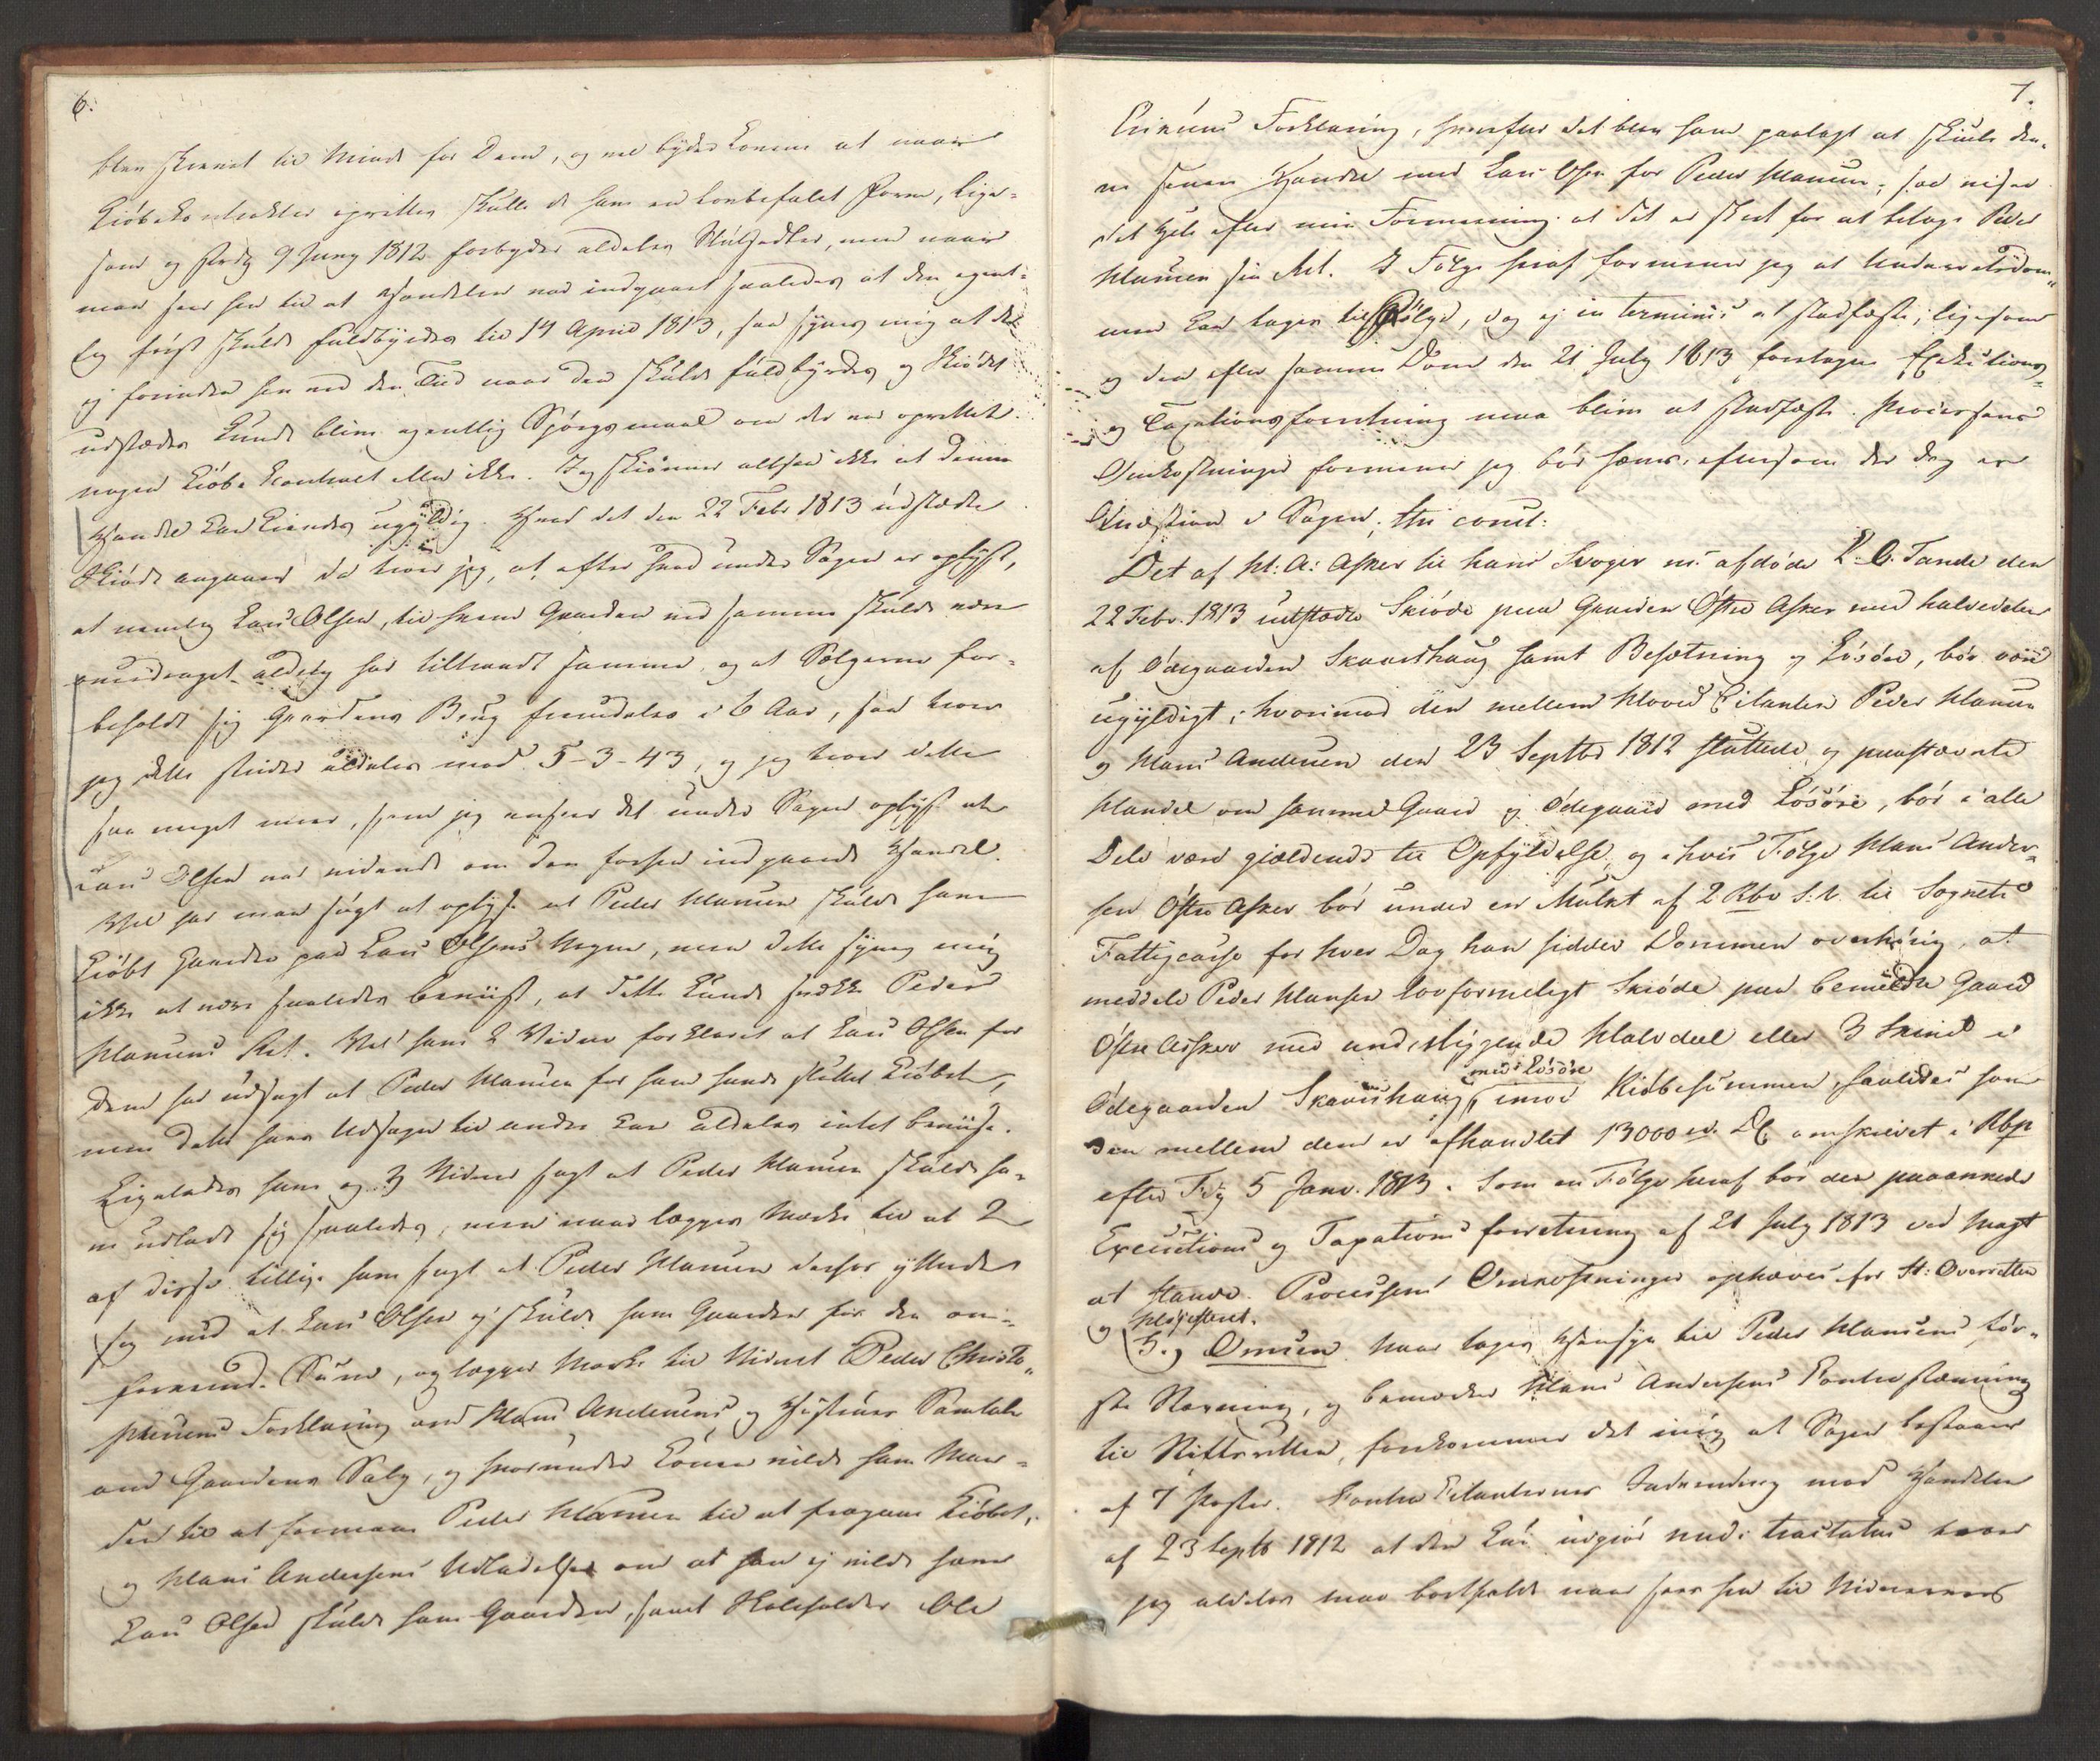 6.
blev skrevet til Minde for Dem, og vel byder Loven at naar
Kiöbekontrakter oprettes skulle de have en lovbefalet Form, lige-
som og Frdg 9 Juny 1812 forbyder aldeles Slutsedler, men naar
man seer hen til at Handelen var indgaaet saaledes at den egent-
lig först skulde fuldbyrdes til 14 April 1813, saa synes mig at det
ej forinden hen ved den Tiid naar den skulde fuldbyrdes og Skiödet
udstædes kunde blive egentlig Spörgsmaal om der var oprettet
nogen Kiöbe Contract eller ikke. Jeg skiönner altsaa ikke at denne
Handel kan kiendes ugyldig. Hvad det den 22 Febr 1813 udstædte
Skiöde angaaer da troer jeg, at efter hvad under Sagen er oplyst,
at nemlig Lars Olsen, til hvem Gaarden ved samme skulde være
overdraget aldrig har tiltraadt samme, og at Sælgerne for-
beholdt sig Gaardens Brug fremdeles i 6 Aar, saa troer
jeg dette strider aldeles mod 5-3-43, og jeg troer dette
saa meget meer, som jeg anseer det under Sagen oplyst at
Lars Olsen var vidende om den forhen indgaaede Handel.
Vel har man sögt at oplyse at Peder Hansen skulde have
kiöbt Gaarden paa Lars Olsens Vegne, men dette synes mig
ikke at være saaledes beviist, at dette kunde svække Peder
Hansens Ret. Vel have 2 Vidner forklaret at Lars Olsen for
dem har udsagt at Peder Hansen for ham havde sluttet Kiöbet,
men dette hans Udsagn til andre kan aldeles intet bevise.
Ligeledes have og 3 Vidner sagt at Peder Hansen skulde ha-
ve udladt sig saaledes, men naar lægges Mærke til at 2
af disse tillige have sagt at Peder Hansen derhos yttrede
sig med at Lars Olsen ej skulde have Gaarden for den om-
forened. Sum, og lægges Mærke til Vidnet Peder Christo-
phersens Forklaring om Hans Andersens og Hustrues Samtale
om Gaardens Salg, og hvorunder Konen vilde have Man-
den til at formaae Peder Hansen til at fragaae Kiöbet,
og Hans Andersens Udladelser om at han ej vilde have
Lars Olsen skulde have Gaarden, samt Skoleholder Ole
7.
Eriksens Forklaring, hvorfor det blev ham paalagt at skiule den-
ne senere Handel med Lars Olsen for Peder Hansen; saa viser
det Hele efter min Formening at det er skeet for at betage Peder
Hansen sin Ret. I Fölge heraf formener jeg at Underretsdom-
men kan tages til Fölge, dog ej in terminis at stadfæste, ligesom
og den efter samme Dom den 21 July 1813 foretagne Exekutions-
og Taxationsforretning maa blive at stadfæste. Processens
Omkostninger formener jeg bör hæves, eftersom der dog er
Qvæstion i Sagen, thi concl:
Det af H: A: Asker til hans Svoger nu afdöde L. O. Tande den
22 Febr. 1813 udstædte Skiöde paa Gaarden Östre Asker med halvedelen
af Ödegaarden Skaarshaug samt Besætning og Lösöre, bör være
ugyldigt; hvorimod den mellem Hoved Citanten Peder Hansen
og Hans Andersen den 23 Septbr 1812 sluttede og paastævnte
Handel om samme Gaard og Ödegaard med Lösöre, bör i alle
Dele være giældende til Opfyldelse, og i hvis Fölge Hans Ander-
sen Östre Asker bör under en Mulkt af 2 Rbd S: V. til Sognets
Fattigcasse for hver Dag han sidder Dommen overhörig, at
meddele Peder Hansen lovformeligt Skiöde paa bemeldte Gaard
Östre Asker med underliggende Halvdeel eller 3 Skind i
Ödegaarden Skaarshaug med Lösöre imod Kiöbesummen, saaledes som
den mellem dem er afhandlet 13000 rd. DC omskrevet i Rbp
efter Frdg 5 Janv. 1813. Som en Fölge heraf bör den paaankede
Executions og Taxations forretning af 21 July 1813 ved Magt
at stande. Processens Omkostninger ophæves for St: Overretten
og Höjesteret.
3.) Omsen. Naar tages Hensyn til Peder Hansens för-
ste Stævning, og bemærkes Hans Andersens Contrastævning
til Stiftsretten, forekommer det mig at Sagen bestaaer
af 7 Poster. Contra Citanternes Indvending mod Handelen
af 23 Septb 1812 at den kun udgiör nudi tractatus troer
jeg aldeles maa bortfalde naar sees hen til Vidnernes